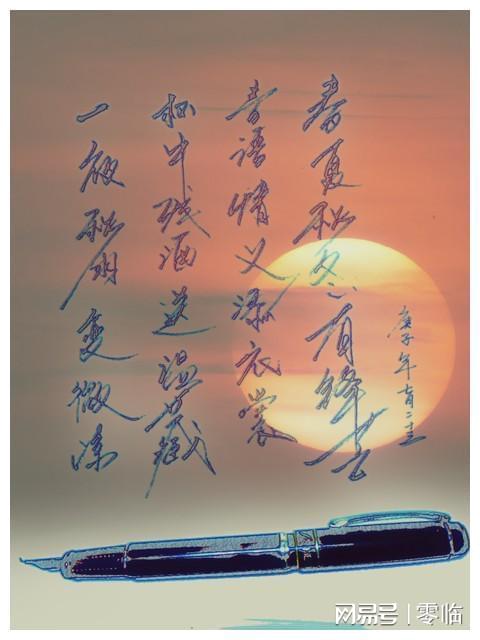 春夏秋冬有锋芒
言语情义添衣裳
杯中残酒送温藏
一夜秋雨变微凉
庚子年月二十三
网易号 | 零临